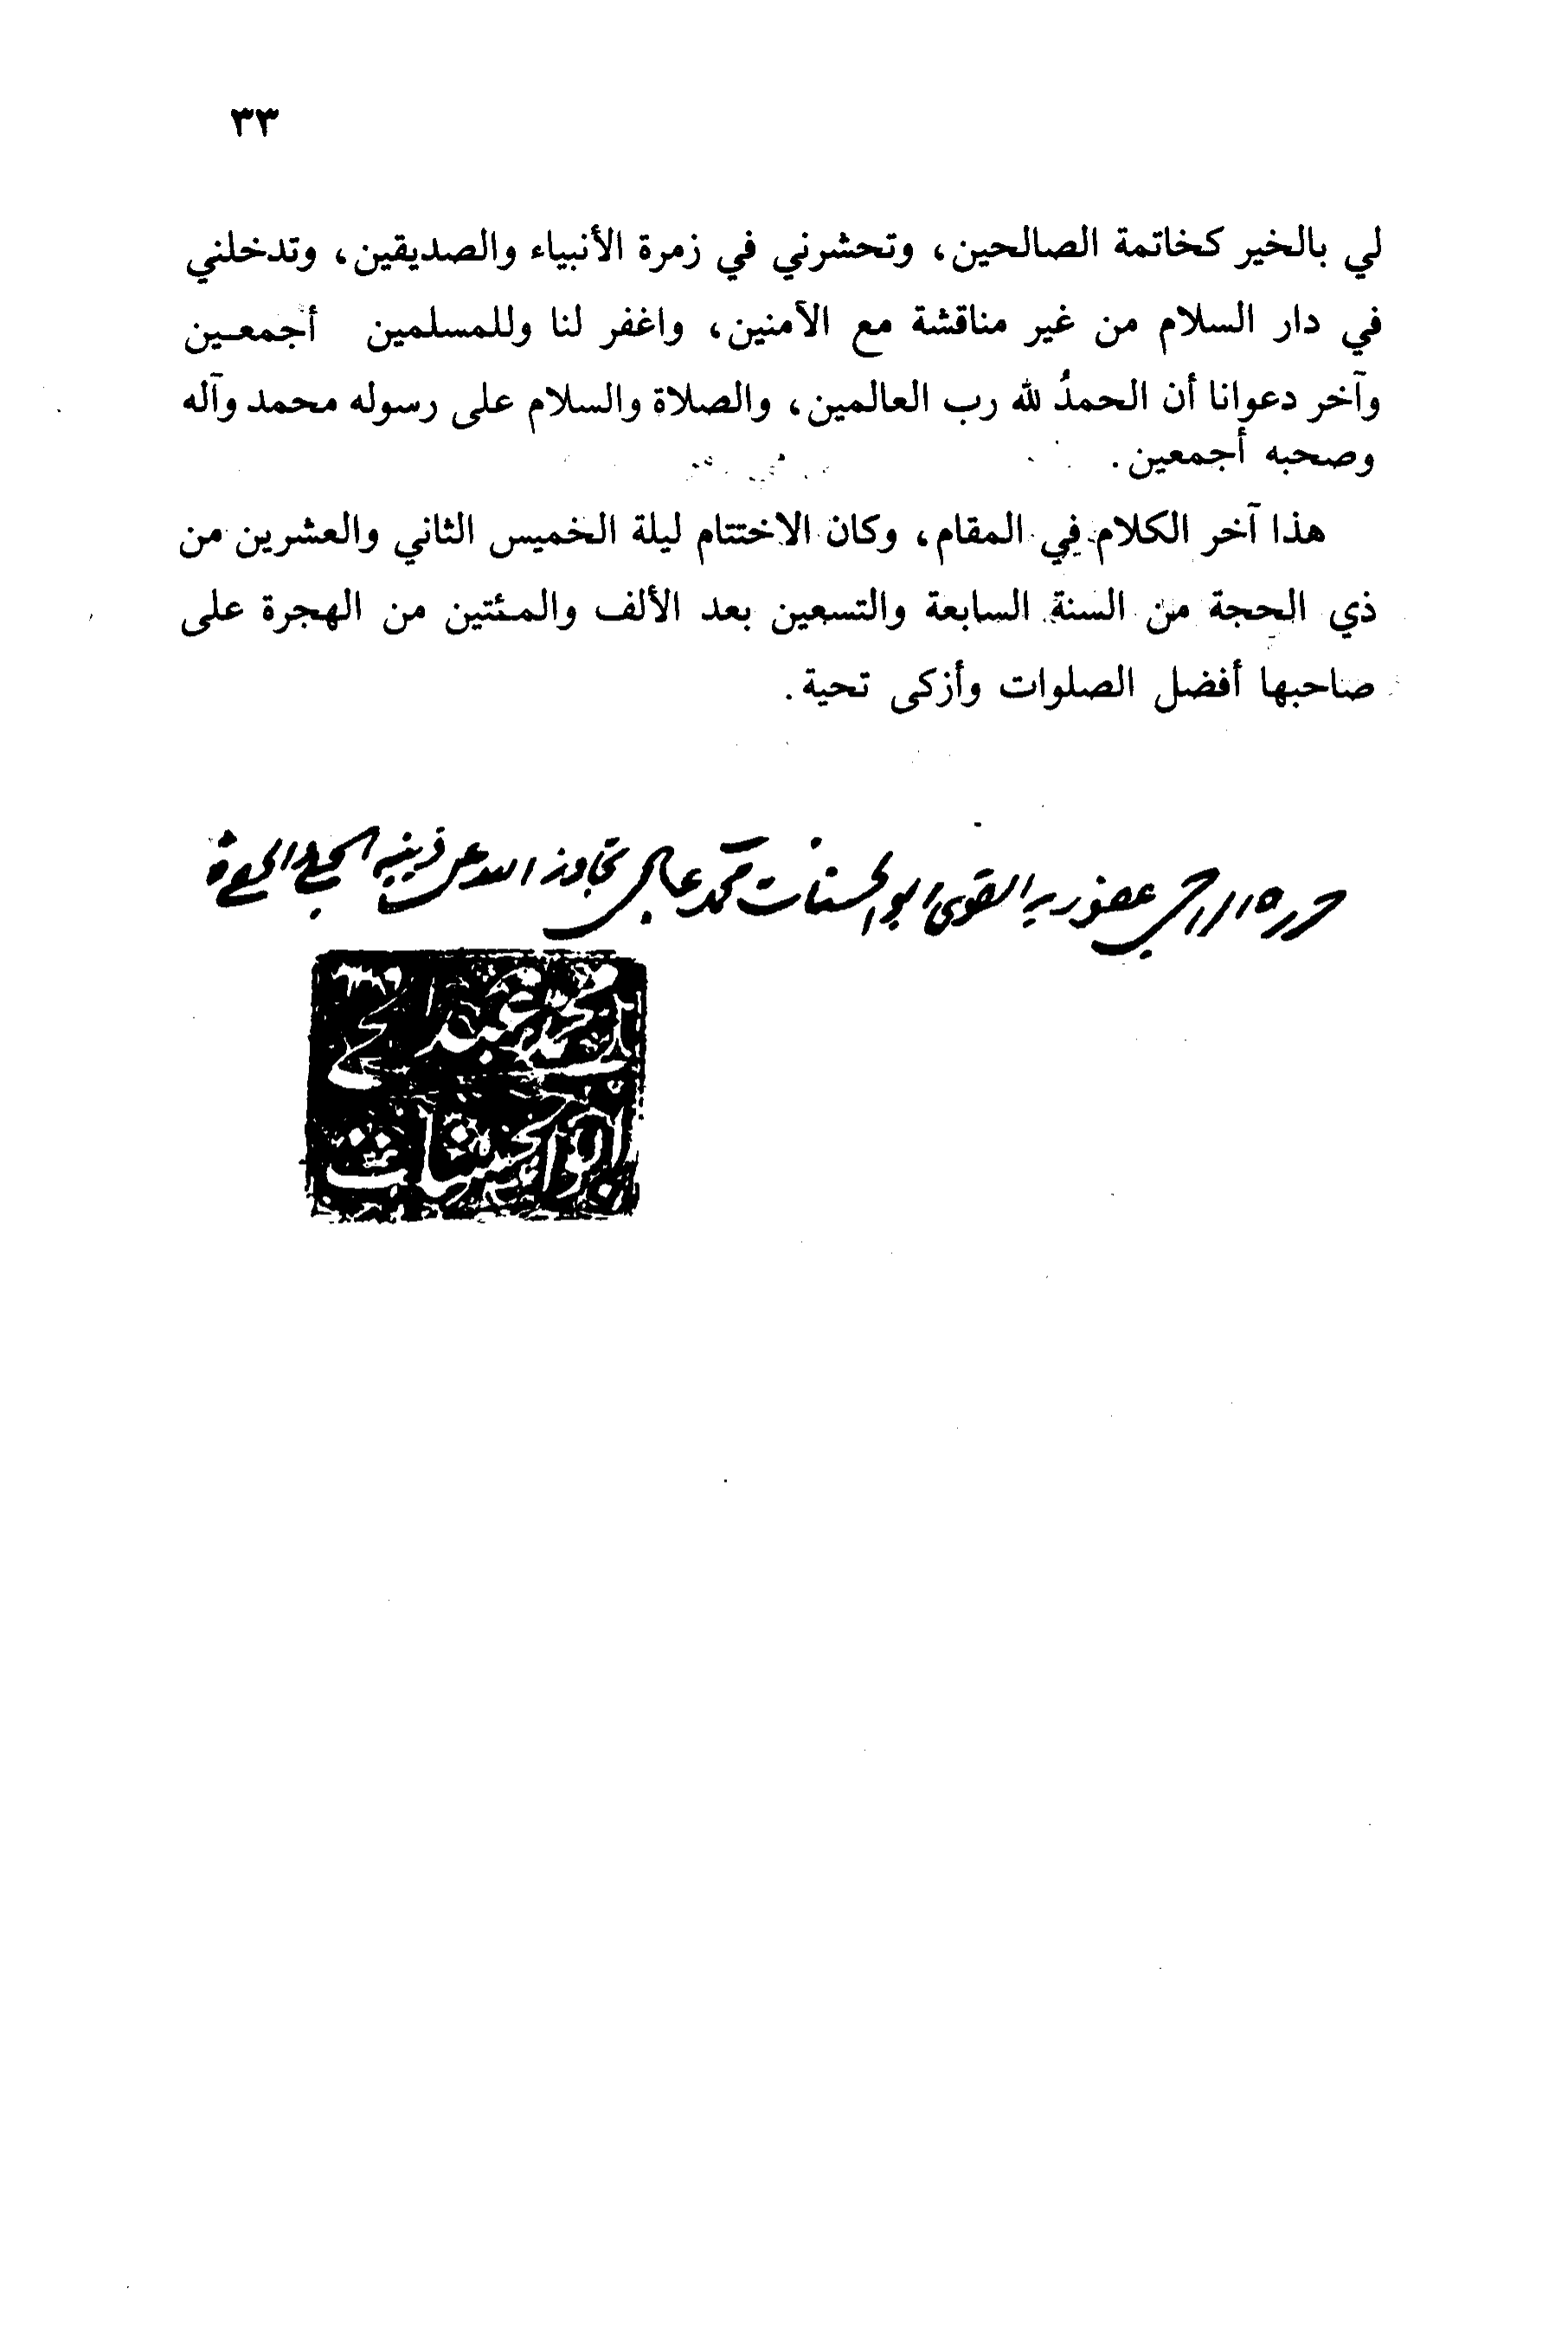 ٣٣
لي بالخير كخاتمة الصالحين، وتحشرني في زمرة الأنبياء والصديقين، وتدخلني
في دار السلام من غير مناقشة مع الآمنين، واغفر لنا وللمسلمين أجمعـين
وآخر دعوانا أن الحمدُ لله رب العالمين، والصلاة والسلام على رسوله محمد وآله
وصحبه أجمعين.
هذا آخر الكلام في المقام، وكان الاختتام ليلة الخميس الثاني والعشرين من
ذي الحجة من السنة السابعة والتسعين بعد الألف والمئتين من الهجرة على
صاحبها أفضل الصلوات وأزكى تحية.
حرره الراجي عفو ربه القوي ابو الحسنات محمد عبد الحي تجاوز الله عن ذنبه الجلي والخفي
محمد عبد الحي
ابو الحسنات